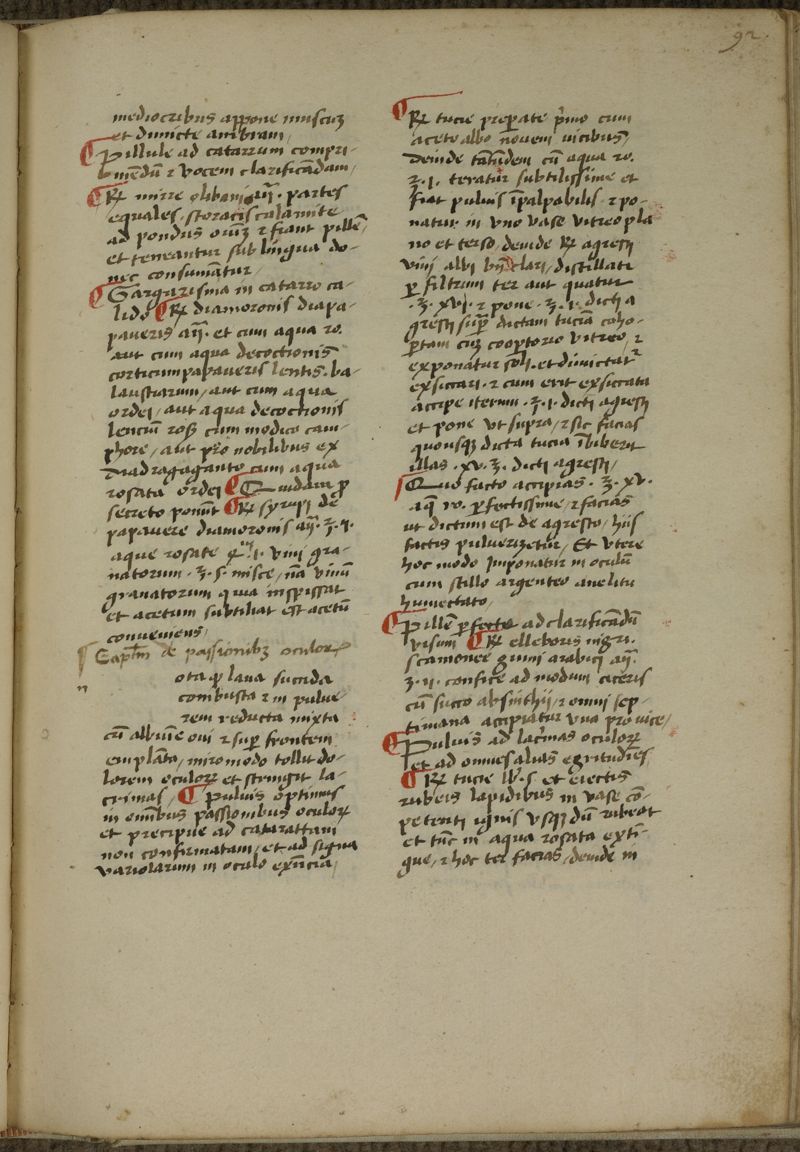 92
mediocribus appone muscuȝ
et dimicte ambram /
¶ Pillule ad catarrum compri-
mēdū ⁊ vocem clarificādam /
¶ R͗ mirre olibani an̄. partes
equales storacis calamite
ad pondus oīuȝ ⁊ fiant pillē
et teneantur sub lingua do-
nec consumātur /
¶ Gargarisma in catarro ca-
lido ¶ R͗ diamoronis diapa-
paueris an̄. et cum aqua ro.
aut cum aqua decoctionis
corticum papaueris lentis. ba-
laustiarum / aut cum aqua
ordei / aut aqua decoctionis
lenciū ros cum modico cam-
phore / aut pro nobilibus ex
diadragaganto cum aqua
rosata ordei ¶ Quidam ꝑ
secreto ponūt ¶ R͗ syrupi de
papauere diamoronis an̄. ℥. i.
aque rosate i. vini gra-
natorum ℥. s. misce / nā vinū
granatorum quia inspissat
et acetum subtiliat est acetū
conueniens /
Capľm de passionibȝ oculoꝝ
ota ꝙ lana sucida
n
combusta ⁊ in pulue-
rem reducta mixta
cū albuīe oui ⁊ suꝑ frontem
emplāta / miro modo tollit do-
lorem oculoꝝ et stringit la-
crimas / ¶ Puluis optimus
in omībus passionibus oculoꝝ
et precipue ad catarattam
non confirmatam / et ad signa
variolarum in oculo exn̄cia /
¶ R͗ tucie preparate pͥmo cum
aceto albo nouem vicibus
deinde tandem cū aqua ro.
℥. i. teratur subtilissime et
fiat puluis īpalpabilis ⁊ po-
natur in vno vase vitreo pla
no et terso deinde R͗ agresti
vini albi clari / distillati
ꝑ filtrum ter aut quatur
℥. xvi. ⁊ pone ℥. i. dicti a
gresti suꝑ dictam tuciā coho-
ꝑtam cuȝ cooꝑtorio vitreo / ⁊
exponatur soli. et dimictatͬ
exsiccari ⁊ cum erit exsiccata
accipe iterum ℥. i. dicti agresti
et pone vt supra / ⁊ sic facias
quousqȝ dicta tucia ībiberit
illas xv. ℥. dicti agresti /
Quo facto accipias ℥. xv.
aq̄ ro. ꝑfectissime / ⁊ facias
ut dictum est de agresto / hiis
factis pulverizetur / Et vtere
hoc modo Imponatur in oculū
cum stillo argenteo anelitu
humectato /
¶ Pillē ꝑfecte ad clarificādū
visum ¶ R͗ ellebori nigri.
scamonee gumi arabici an̄.
℥. ii. confice ad modum ciceris
cū succo absinthii / ⁊ omni sep-
timana accipiatur vna pro vice /
¶ Puluis ad lacͥmas oculoꝝ
et ad omnes alias egritudies
¶ R͗ tucie lb. s. et eiectis
rubeis lapidibus in vase cō-
petenti ignis vsqȝ dū rubeat
et tūc in aqua rosata extī-
gue / ⁊ hoc ter facias / deinde in